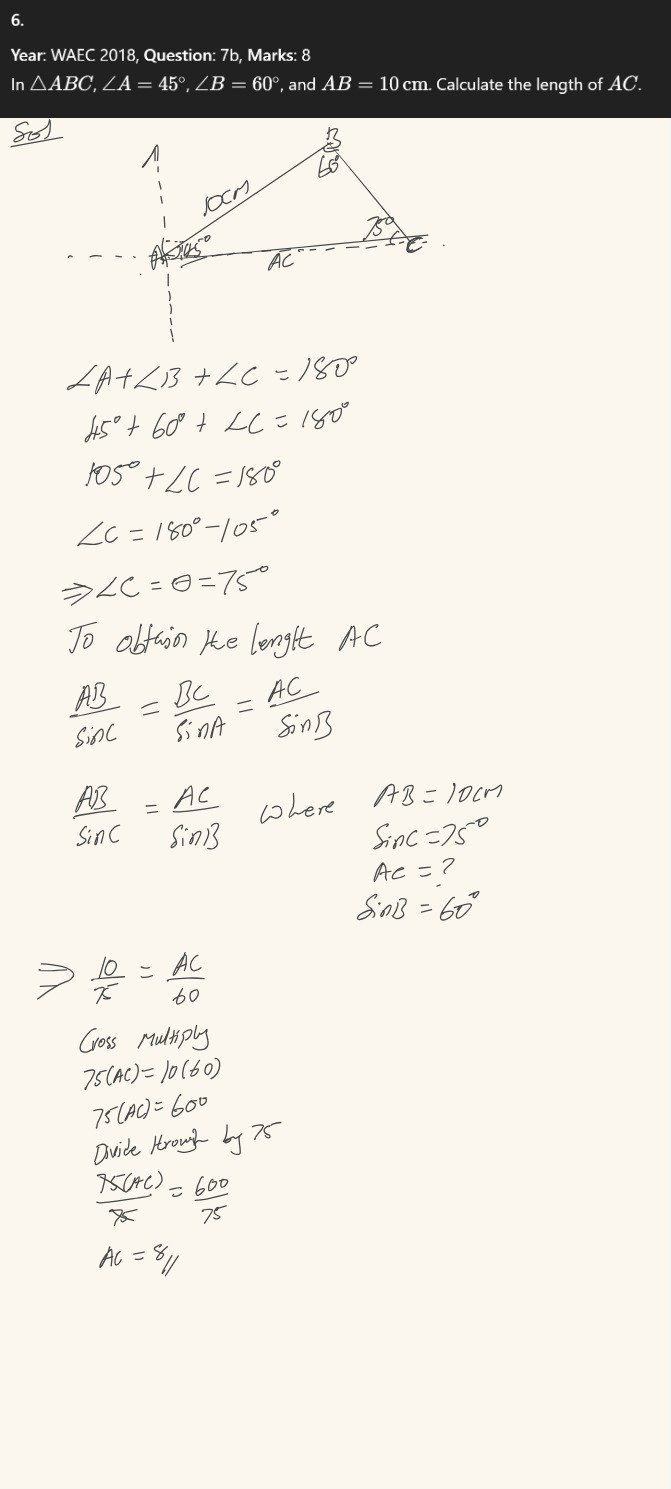 6.
Year: WAEC 2018, Question: 7b, Marks: 8
In △ABC, ∠A = 45°, ∠B = 60°, and AB = 10 cm. Calculate the length of AC.
Sol
B
60°
10cm
75°
A 45°
C
AC
∠A+∠B+∠C=180°
45°+60°+∠C=180°
105°+∠C=180°
∠C=180°-105°
⇒∠C=θ=75°
To obtain the lenght AC
AB/SinC = BC/SinA = AC/SinB
AB/SinC = AC/SinB where AB=10cm
SinC=75°
AC=?
SinB=60°
⇒ 10/75 = AC/60
Cross Multiply
75(AC)=10(60)
75(AC)=600
Divide through by 75
75(AC)/75 = 600/75
AC=8//